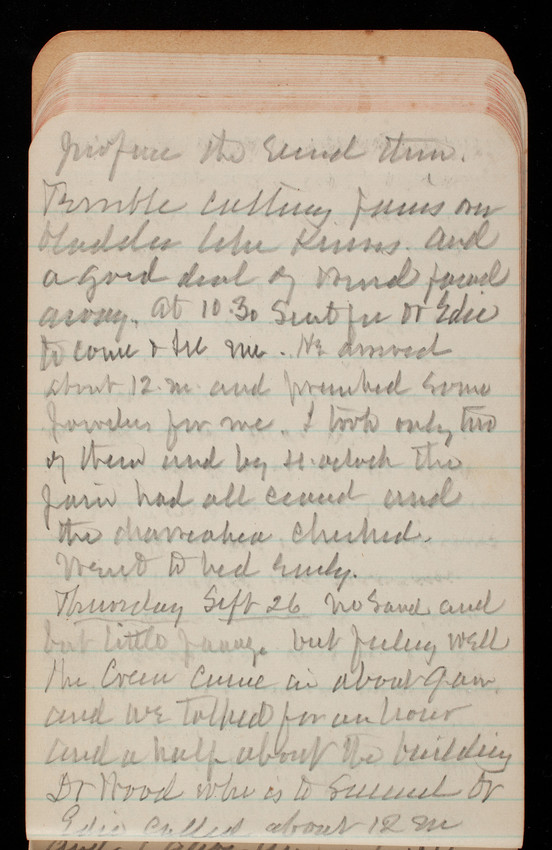 profuse the second time.
Terrible cutting pains over
bladder like kinks. and
a good deal of wind passed
away. At 10.30 Sent for Dr Edie
to come & see me. He arrived
about 12 m. and prescribed some
powders for me. I took only two
of them and by o'clock the
pain had all ceased and
the diarrohea checked.
Went to bed early.
Thursday Sept 26 No Sand and
but little passage but feeling well
the came in about 9 am.
and we talked for an hour
and a half about the building
Dr Wood who is to Succeed Dr
Edie called about 12 m